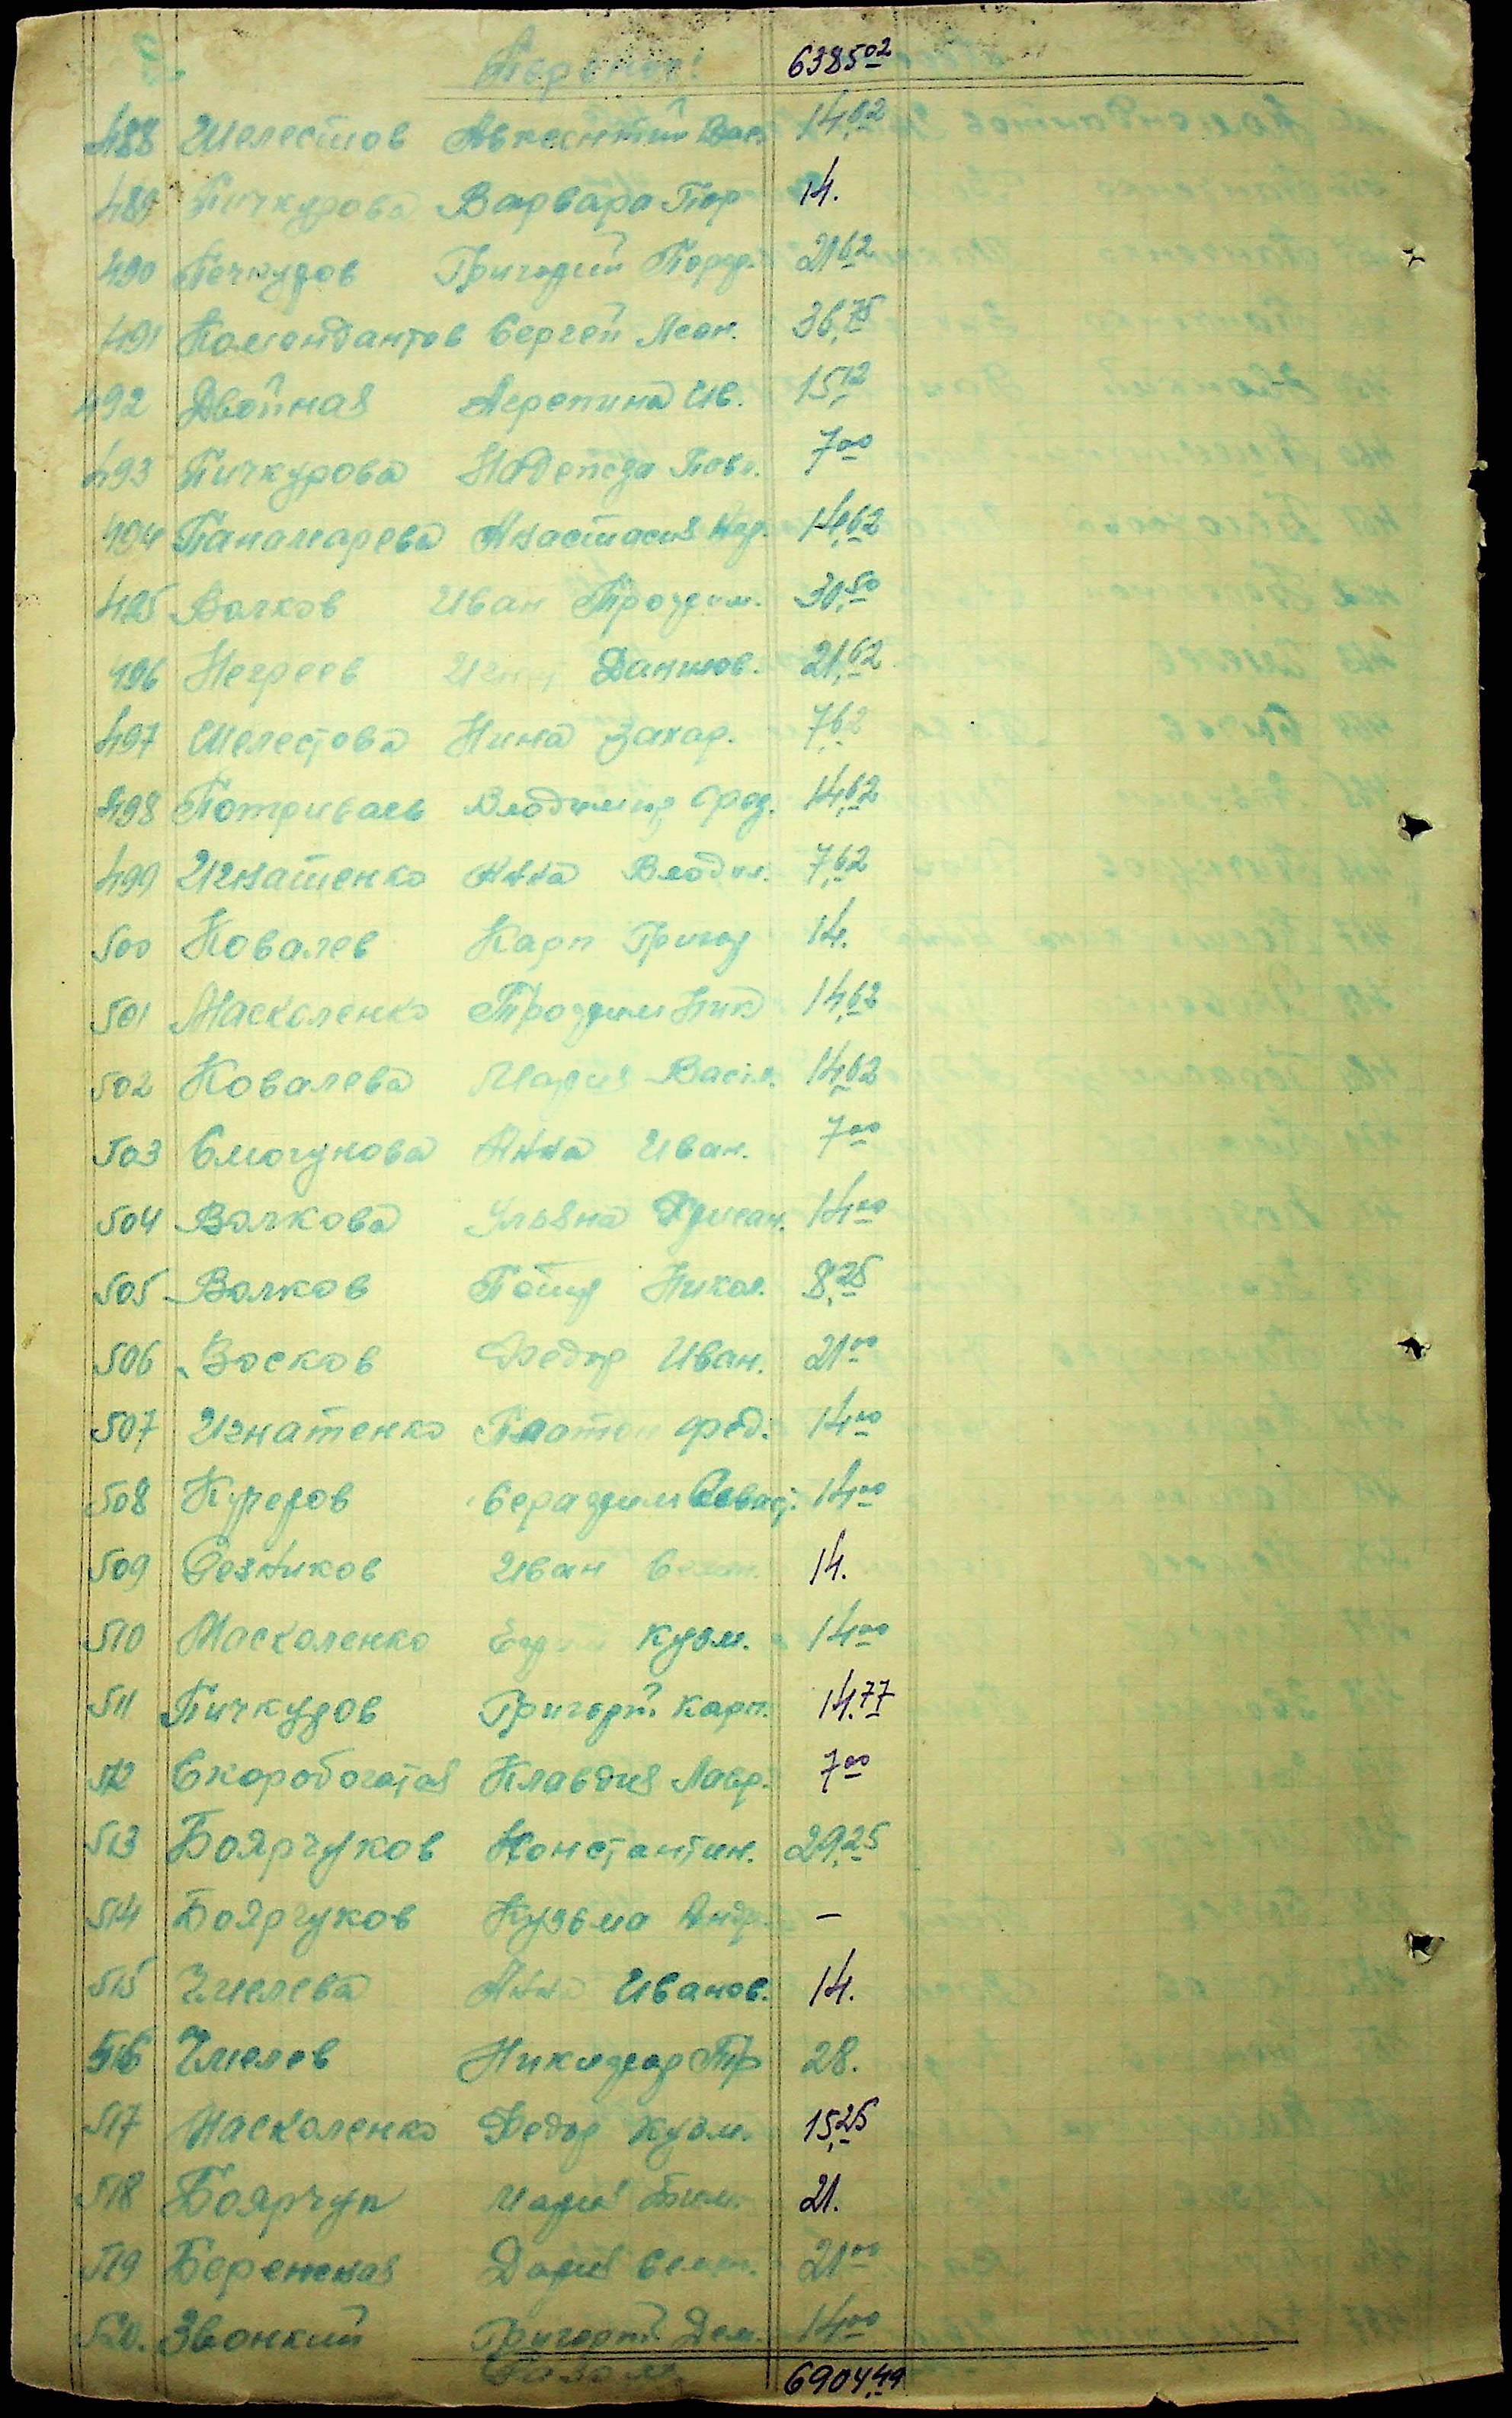 6385 02
488 Шелестов Авксентий Вас. 14,62
489 Пичкурова Варвара 14.
490 Печкуров Григорий 21 62
491 Комендантов Сергей Леон. 36,75
492 Двойная Агрепина Ив. 15,12
493 Пичкурова Надежда Павл. 7 00
494 Панамарева Анастасия 14,62
495 Волков Иван Трофим. 30,50
496 Негреев Данилов. 21,62
497 Шелестова Нина Захар. 7,62
498 Потриваев Влодимир Фед. 14,62
499 Игнатенко Анна Влодим. 7,62
500 Ковалев Карп Григор 14.
501 Маскаленко Трофим Ник 14,62
502 Ковалева Мария Васил. 14,62
503 Смогунова Анна Иван. 7 00
504 Волкова Ульяна 14 00
505 Волков Никол. 8,25
506 Восков Федор Иван. 21 00
507 Игнатенко Платон Фед. 14 00
508 Кучеров Серафим 14 00
509 Резников Иван 14.
510 Маскаленко Кузм. 14 00
511 Пичкуров Григорий Карп. 14.77
512 Скоробогатая Клавдия Лавр. 7 00
513 Боярчуков Константин. 29,25
514 Боярчуков Кузьма Андр. –
515 Чмелева Анна Иванов. 14.
516 Чмелев Никифор Тр 28.
517 Маскаленко Федор Кузм. 15,25
518 Боярчук 21.
519 Бережная Дария 21 00
520. Звонкий Григорий Дем. 14 00
Разом 6904,49